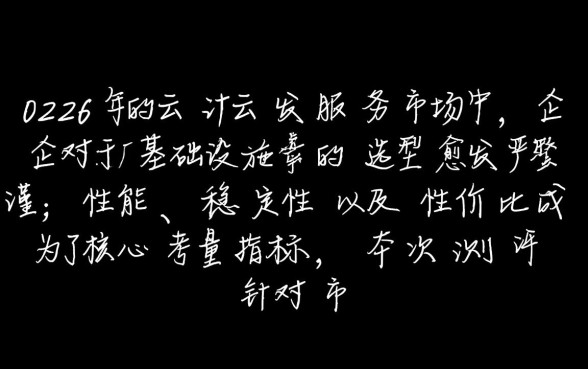 0226年的云 计云 发服务市场中，企
企对于厂基础设施的 选型愈发严
谨；性能、稳定性 以及 性价比成
为了核心 考量指标， 本次 测评
针对 市